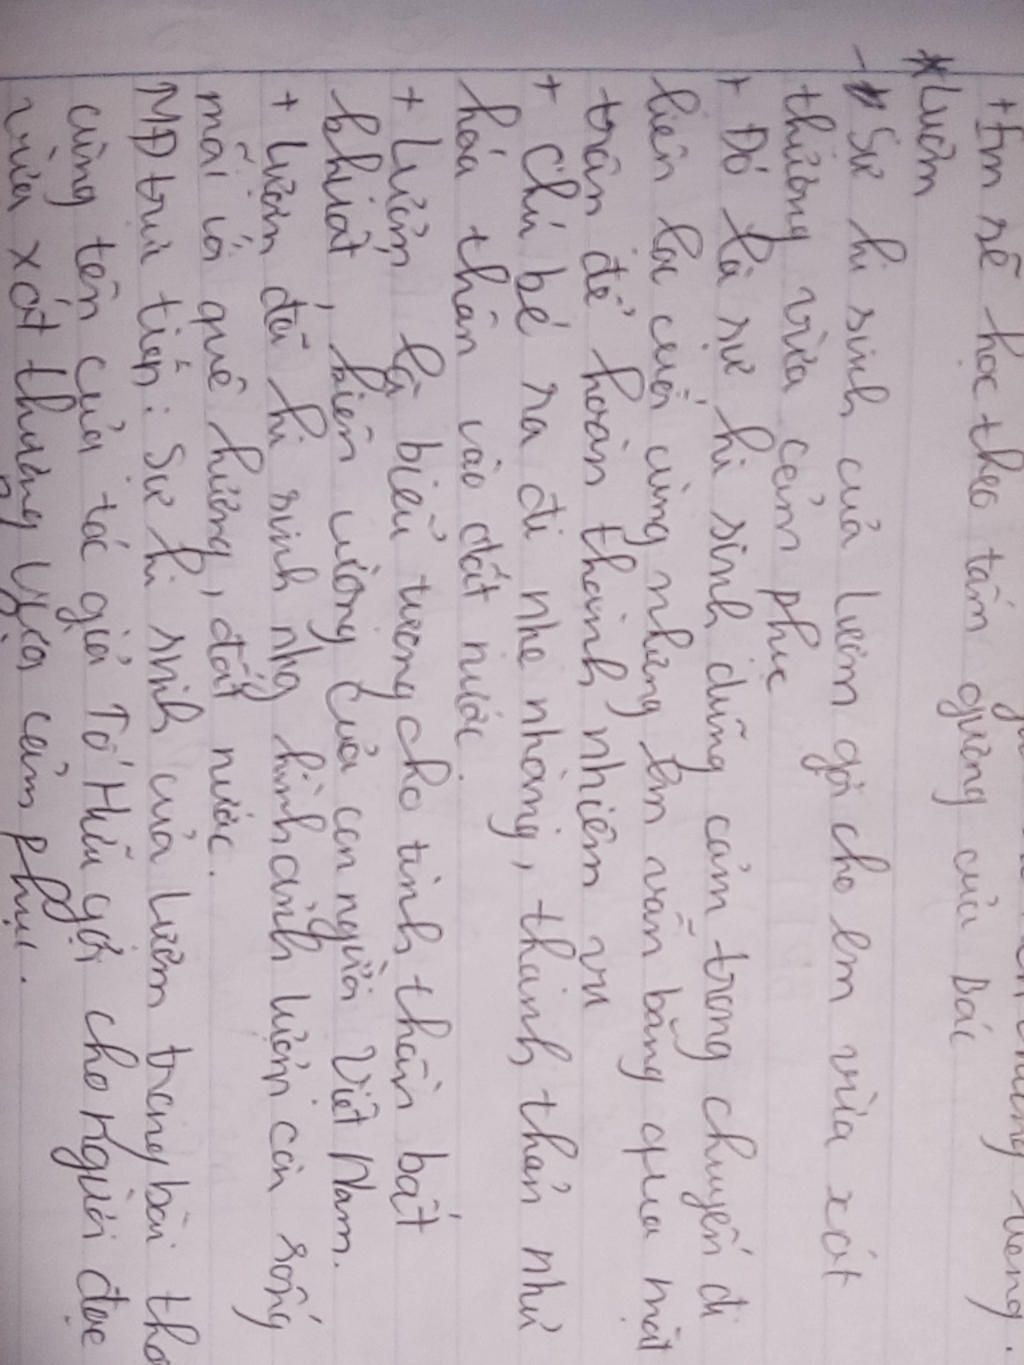 + Em sẽ học theo tấm gương của Bác
* Lượm
- Sự hi sinh của Lượm gợi cho em vừa xót
thương vừa cảm phục
+ Đó là sự hi sinh dũng cảm trong chuyến đi
liên lạc cuối cùng nhưng em vẫn băng qua mặt
trận để hoàn thành nhiệm vụ
+ Chú bé ra đi nhẹ nhàng, thanh thản như
hóa thân vào đất nước.
+ Lượm là biểu tượng cho tinh thần bất
khuất, kiên cường của con người Việt Nam.
+ Lượm đã hi sinh nhg hình ảnh Lượm còn sống
mãi với quê hương, đất nước.
MĐ trực tiếp: Sự hi sinh của Lượm trong bài thơ
cùng tên của tác giả Tố Hữu gợi cho người đọc
vừa xót thương vừa cảm phục.